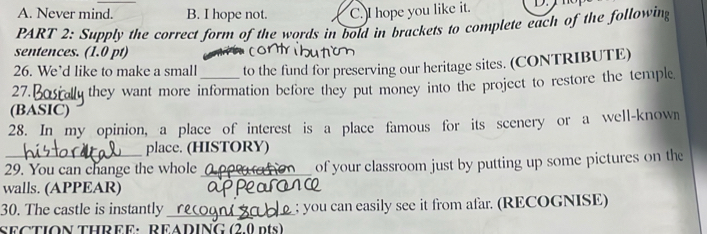 A. Never mind. B. I hope not. C. I hope you like it. D.
PART 2: Supply the correct form of the words in bold in brackets to complete each of the following
sentences. (1.0 pt)
contribution
26. We'd like to make a small ______ to the fund for preserving our heritage sites. (CONTRIBUTE)
27. Basically they want more information before they put money into the project to restore the temple.
(BASIC)
28. In my opinion, a place of interest is a place famous for its scenery or a well-known
historical place. (HISTORY)
29. You can change the whole appearation of your classroom just by putting up some pictures on the
walls. (APPEAR) appearance
30. The castle is instantly recognizable; you can easily see it from afar. (RECOGNISE)
SECTION THREE: READING (2.0 pts)